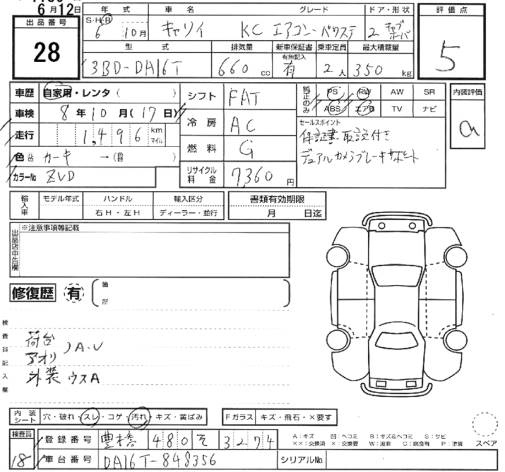 6月12日
出品番号
28
S・H・R
6
10月
車名
キャリイ
グレード
KC エアコン・パワステ
ドア・形状
2
評価点
5
型式
3BD-DA16T
排気量
660cc
新車保証書
有無記入
有
乗車定員
2人
最大積載量
350kg
車歴 自家用・レンタ( )
車検 8年10月(17日)
走行 1,496 km マイル
色 カーキ →(替 )
カラーNo ZVD
シフト FAT
冷房 AC
燃料 G
リサイクル料金 7,360円
純正のみ
PS PW AW SR
ABS エアB TV ナビ
セールスポイント
保証書・取説付き
デュアルカメラブレーキサポート
内図評価
a
輸入車
モデル年式
ハンドル
右H・左H
輸入区分
ディーラー・並行
書類有効期限
月 日迄
出品店申告欄
※注意事項等記載
修復歴 有
箇所
検査員記入欄
荷台
アオリ
ノA.U
外装 ウスA
内装シート 穴・破れ・スレ・コゲ・汚れ・キズ・黄ばみ
Fガラス キズ・飛石・×要す
検査員
18
登録番号 豊橋 480 そ 3274
車台番号 DA16T-848356
シリアルNo
スペア